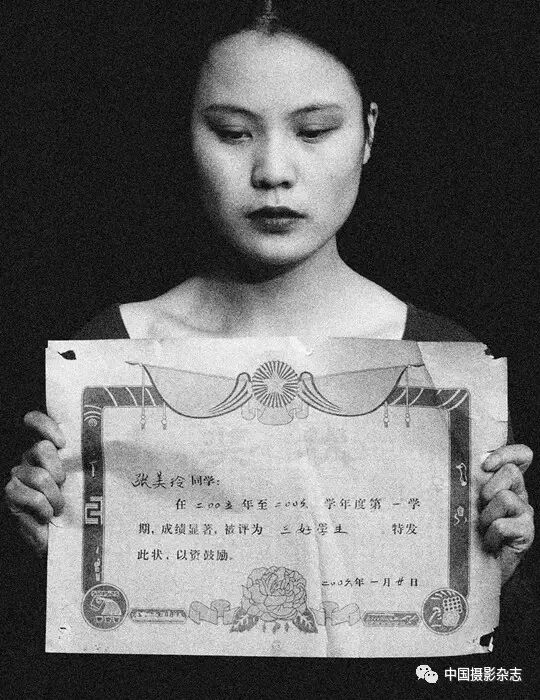 张美玲同学:
在二〇〇五年至二〇〇六 学年度第一学
期,成绩显著,被评为 三好学生 特发
此状、以资鼓励。
二〇〇六年一月廿日
中国摄影杂志